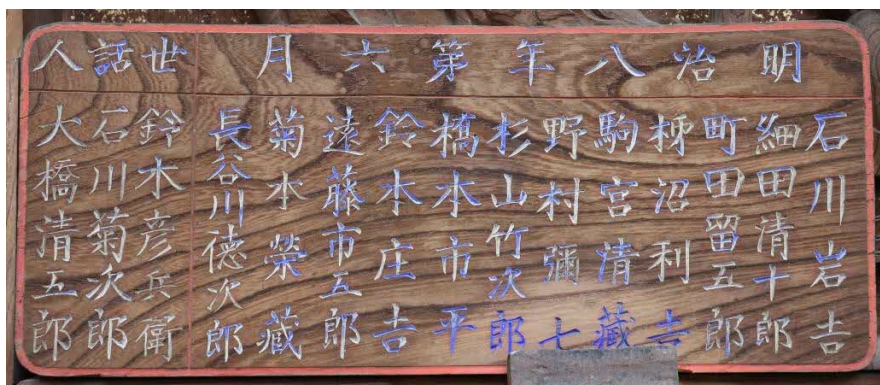 明治八年第六月
石川岩吉
細田清十郎
町田留五郎
柿沼利吉
駒宮清藏
野村彌七
杉山竹次郎
橋本市平
鈴木庄吉
遠藤市五郎
菊本榮藏
長谷川德次郎
世話人
鈴木彦兵衛
石川菊次郎
大橋清五郎